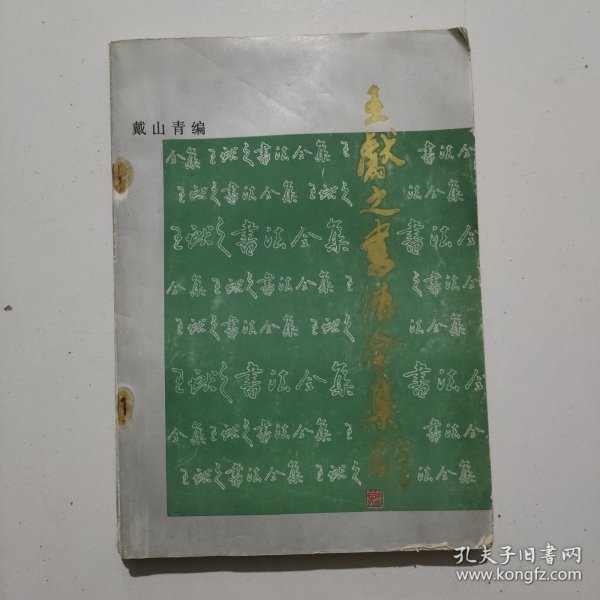 戴山青编
王献之书法全集
全集 王献之书法全集 王 书法全
王献之书法全集 王献之 法全集
王献之書法全集 書法全集
全集 王献之书法全集 王献之 书法全
王献之书法全集 王献之 法全集
王献之書法全集 書法全集
全集 王献之书法全集 王 书法全
王献之书法全集 王献之 法全集
孔夫子旧书网
www.kongfz.com